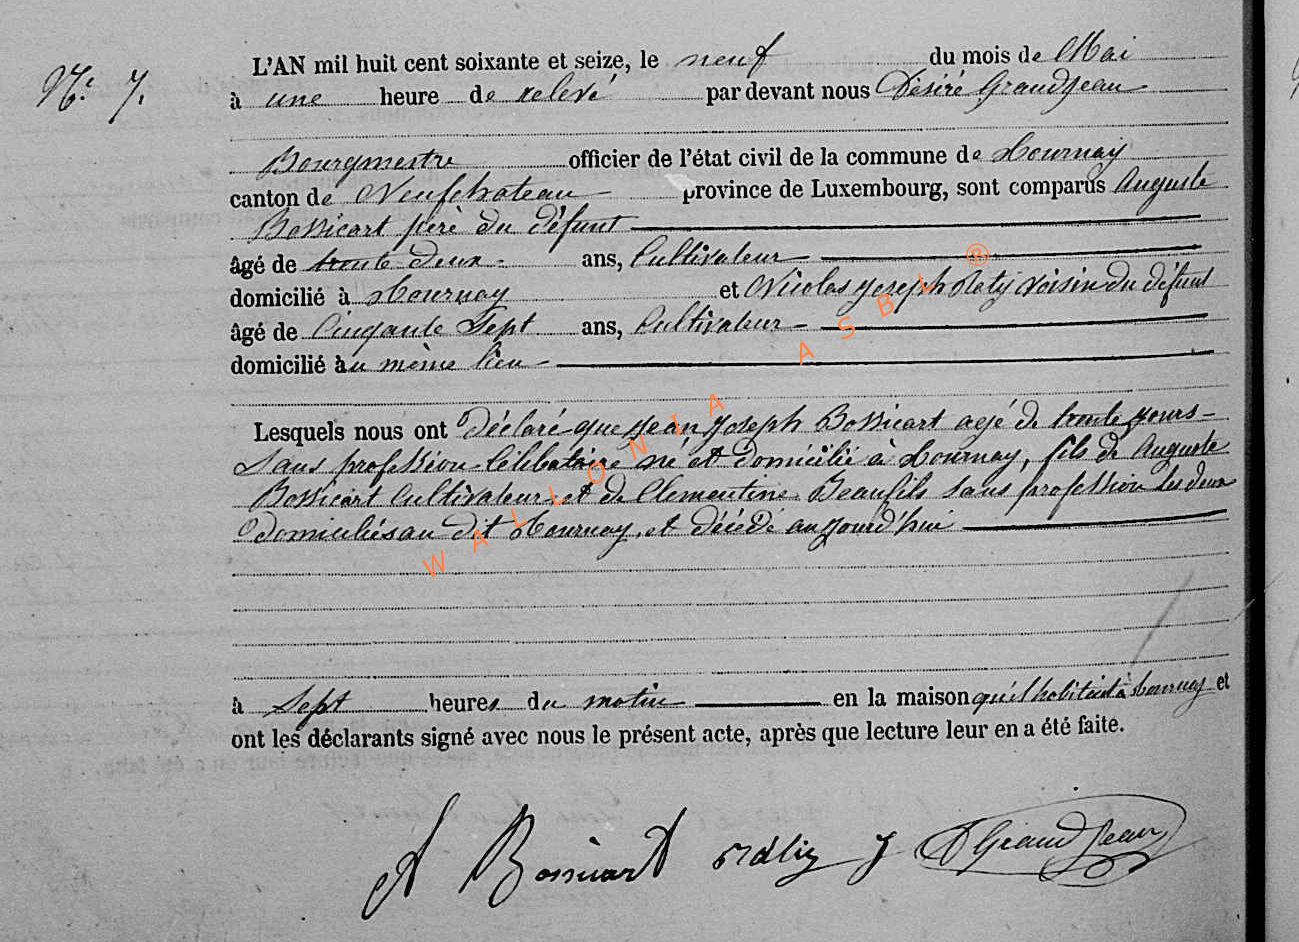 N.º 7.
L'AN mil huit cent soixante et seize, le neuf du mois de Mai
à une heure de relevé par devant nous Désiré Grandjean
Bourgmestre officier de l'état civil de la commune de Tournay
canton de Neufchateau province de Luxembourg, sont comparus Auguste
Bossicart père du défunt
âgé de trente deux ans, Cultivateur
domicilié à Tournay et Nicolas Joseph voisin du défunt
âgé de Cinqante Sept ans, Cultivateur
domicilié àu même lieu
Lesquels nous ont déclaré que Jean Joseph Bossicart agé de trente jours
Sans profession Célibataire né et domicilié à Tournay, fils de Auguste
Bossicart Cultivateur et de Clementine Beaufils Sans profession Les deux
domiciliés au dit Tournay, et décédé aujourd'hui
à Sept heures du matin en la maison qu'il habitait à Tournay et
ont les déclarants signé avec nous le présent acte, après que lecture leur en a été faite.
A Bossicart J DGrandjean
WALLONIA ASBL ®